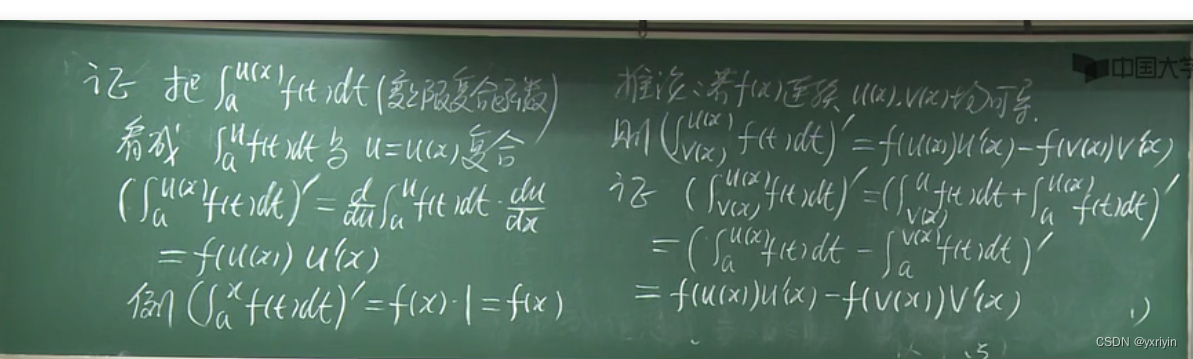 证 把 ∫_a^{u(x)} f(t)dt (变上限复合函数)
看成 ∫_a^u f(t)dt 与 u=u(x) 复合
(∫_a^{u(x)} f(t)dt)′ = d/du ∫_a^u f(t)dt · du/dx
= f(u(x)) u′(x)
例 (∫_a^x f(t)dt)′ = f(x)·1 = f(x)
推论:若f(x)连续 u(x),v(x)均可导.
则 (∫_{v(x)}^{u(x)} f(t)dt)′ = f(u(x))u′(x) − f(v(x))v′(x)
证 (∫_{v(x)}^{u(x)} f(t)dt)′ = (∫_{v(x)}^{a} f(t)dt + ∫_a^{u(x)} f(t)dt)′
= (∫_a^{u(x)} f(t)dt − ∫_a^{v(x)} f(t)dt)′
= f(u(x))u′(x) − f(v(x))v′(x)
中国大学
CSDN @yxriyin